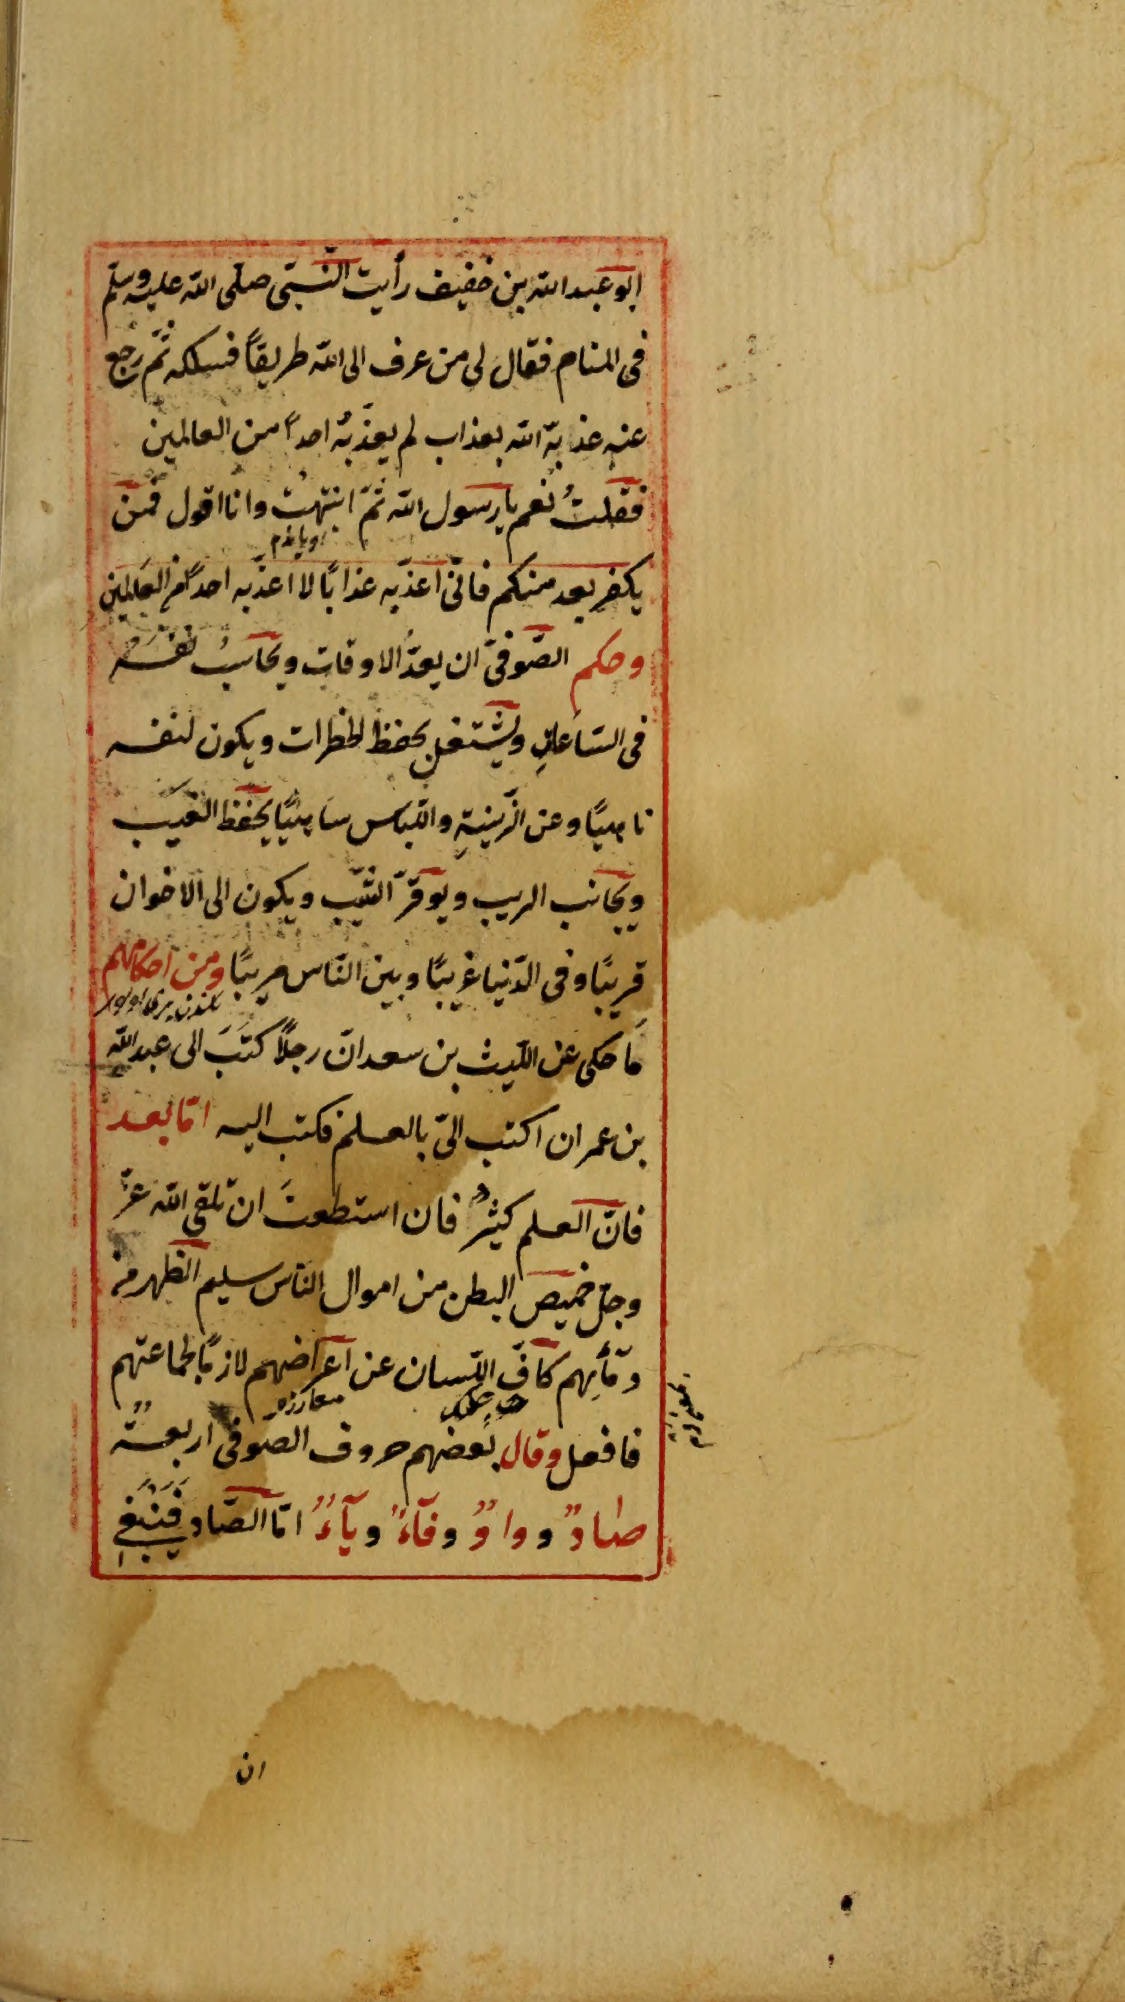 ابو عبد الله بن خفيف رأيت النّبىّ صلى الله عليه وسلم
فى المنام فقال لى من عرف الى الله طريقاً فسلكه ثمّ رجع
عنه عذبه الله بعذاب لم يعذّبه احداً من العالمين
فقلتُ نعم يا رسول الله ثمّ انتبهت وانا اقول فمن
يكفر بعد منكم فانّى اعذّبه عذابًا لا اعذّبه احداً من العالمين
وحكم الصّوفىّ ان يعدّ الاوقات ويحاسبُ نفسه
فى الساعات ويشتغل بحفظ الخطرات ويكون لنفسه
ناهيًا وعن الزّينةِ واللباس ساهيًا يحفظ الغيب
ويجانب الريب ويوقّر الشّيب ويكون الى الاخوان
قريبًا وفى الدّنيا غريبًا وبين النّاس مريبًا ومن احكامهم
مَا حكى عن اللّيث بن سعد انّ رجلًا كتَبَ الى عبد الله
بن عمر ان اكتب الىّ بالعلم فكتب اليه امّا بعد
فانّ العلم كثيرٌ فان استطعتَ ان تلقى الله عزّ
وجلّ خميص البطن من اموال الناس سليم الظهر من
دمآئهم كافّ اللّسان عن اعراضهم لازمًا لجماعتهم
فافعل وقال بعضهم حروف الصوفى اربعةٌ
صادٌ وواوٌ وفآءٌ ويآءٌ امّا الصّاد فينبغى
ان